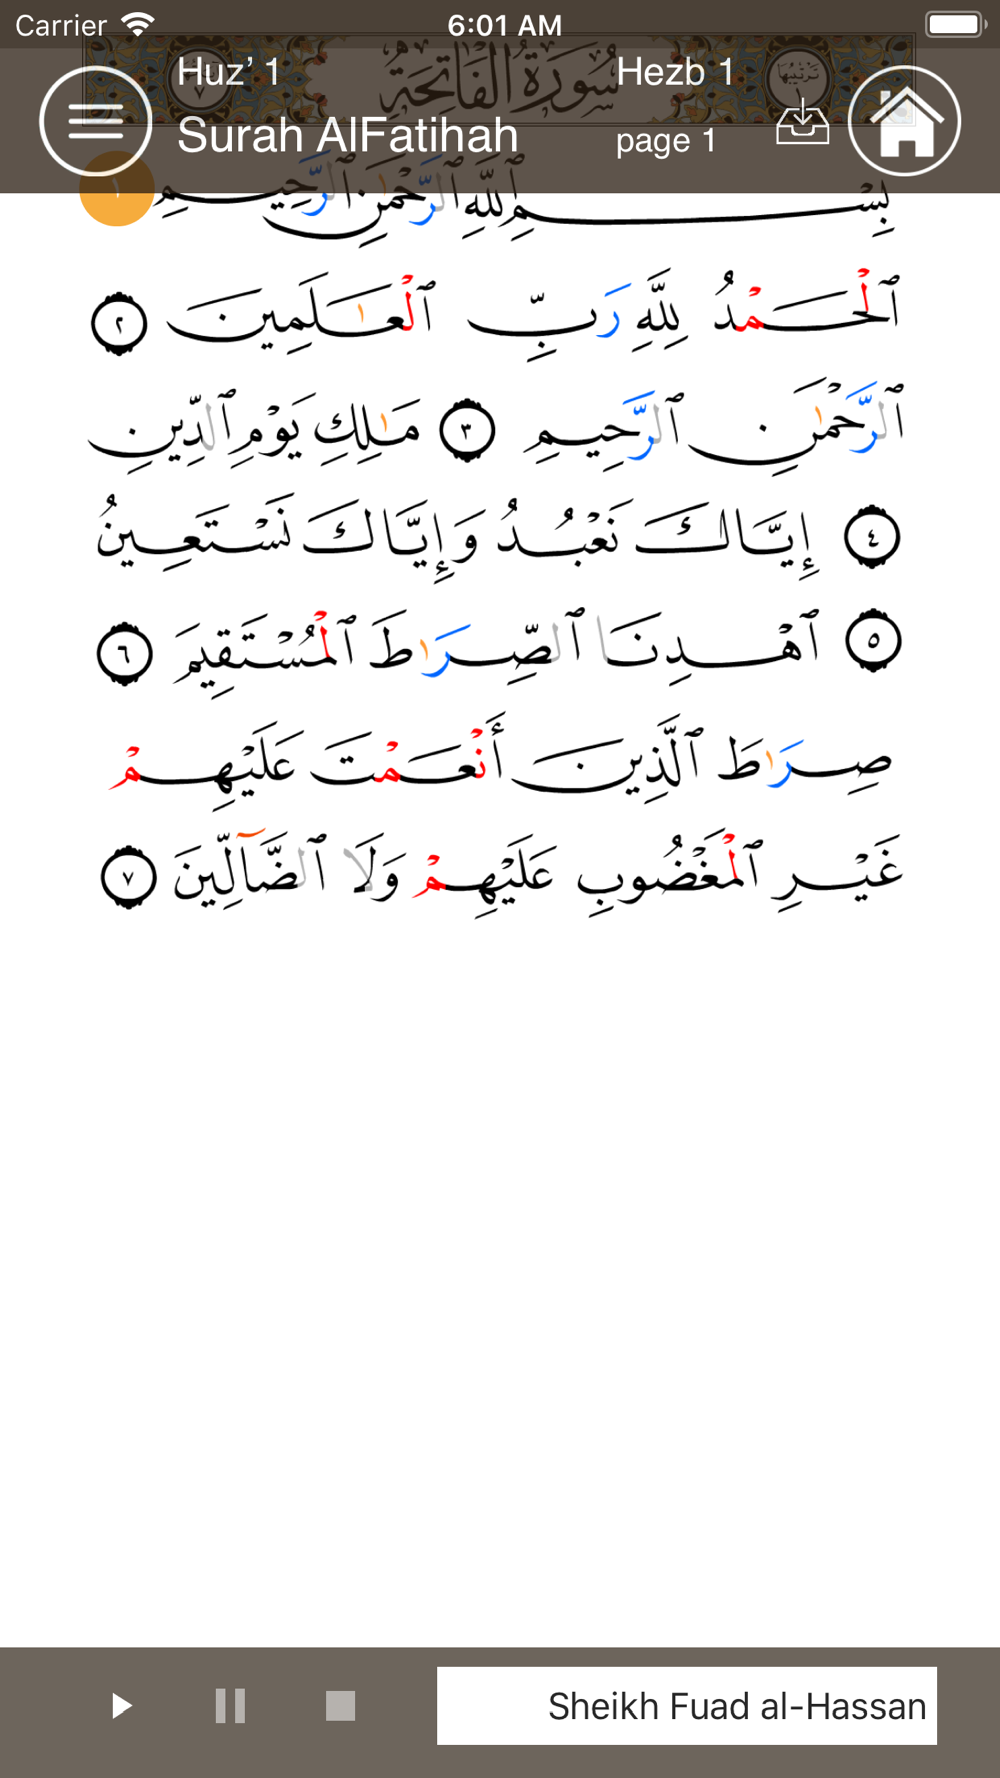 Carrier 6:01 AM
Huz’ 1 Hezb 1
Surah AlFatihah page 1
سُورَةُ الفَاتِحَةِ
تَرْتِيبُهَا ١
٧
بِسْمِ ٱللَّهِ ٱلرَّحْمَٰنِ ٱلرَّحِيمِ ١
ٱلْحَمْدُ لِلَّهِ رَبِّ ٱلْعَٰلَمِينَ ٢
ٱلرَّحْمَٰنِ ٱلرَّحِيمِ ٣ مَٰلِكِ يَوْمِ ٱلدِّينِ
٤ إِيَّاكَ نَعْبُدُ وَإِيَّاكَ نَسْتَعِينُ
٥ ٱهْدِنَا ٱلصِّرَٰطَ ٱلْمُسْتَقِيمَ ٦
صِرَٰطَ ٱلَّذِينَ أَنْعَمْتَ عَلَيْهِمْ
غَيْرِ ٱلْمَغْضُوبِ عَلَيْهِمْ وَلَا ٱلضَّآلِّينَ ٧
Sheikh Fuad al-Hassan